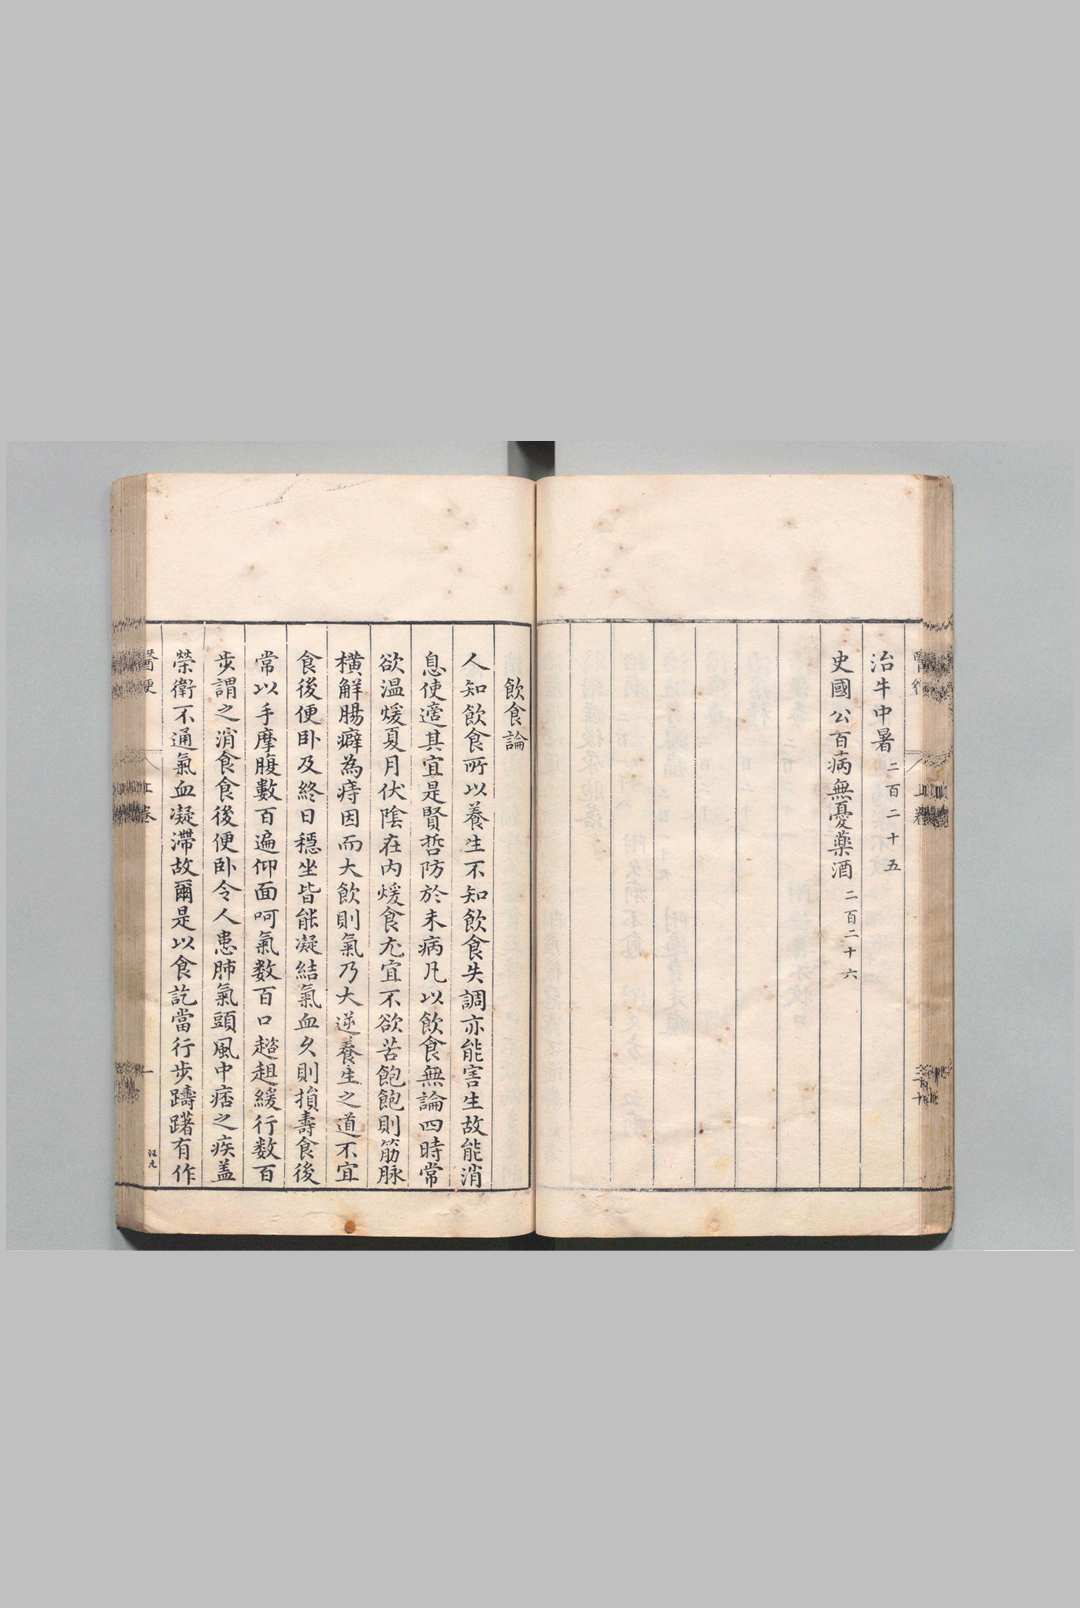 治牛中暑 二百二十五
史國公百病無憂藥酒 二百二十六
飲食論
人知飲食所以養生不知飲食失調亦能害生故能消
息使適其宜是賢哲防於未病凡以飲食無論四時常
欲温煖夏月伏陰在内煖食尤宜不欲苦飽飽則筋脉
横解腸癖為痔因而大飲則氣乃大逆養生之道不宜
食後便卧及終日穩坐皆能凝結氣血久則損壽食後
常以手摩腹數百遍仰面呵氣数百口趦趄緩行数百
步謂之消食食後便卧令人患肺氣頭風中痞之疾盖
榮衛不通氣血凝滯故爾是以食訖當行步躊躇有作
醫便
上卷
一